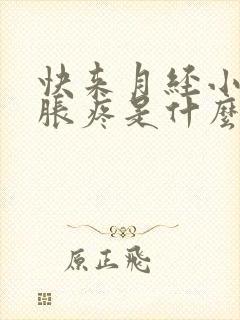 快来月经小
胀疼是什麼
原正飛